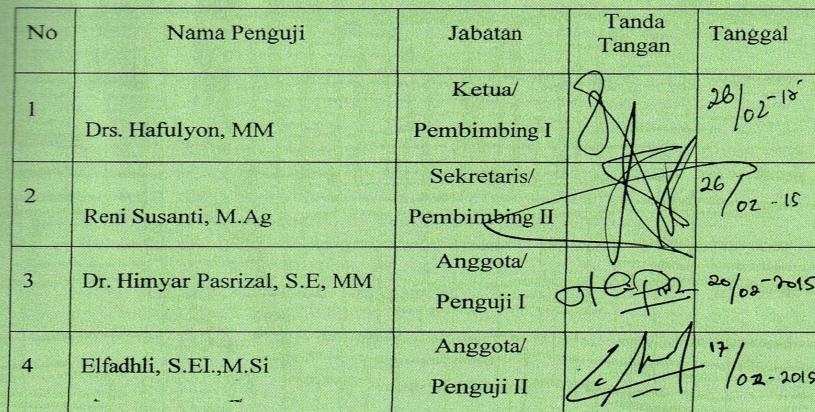 No Nama Penguji Jabatan Tanda Tangan Tanggal
1 Drs. Hafulyon, MM Ketua/ Pembimbing I 26/02-15
2 Reni Susanti, M.Ag Sekretaris/ Pembimbing II 26/02-15
3 Dr. Himyar Pasrizal, S.E, MM Anggota/ Penguji I 20/02-2015
4 Elfadhli, S.EI.,M.Si Anggota/ Penguji II 17/02-2015